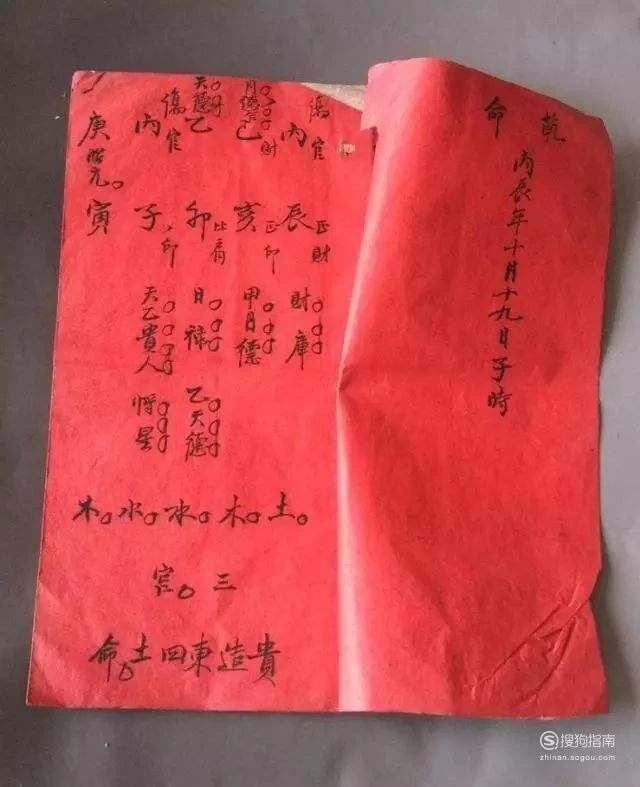 乾
命
丙辰年十月十九日子時
傷官
丙
辰
正財
財庫
財
己
亥
正印
甲月德
天德
乙
卯
比肩
日禄
乙天德
傷官
丙
子
印
天乙貴人
將星
庚
寅
土木水水木
三官
貴造東四土命
搜狗指南
zhinan.sogou.com